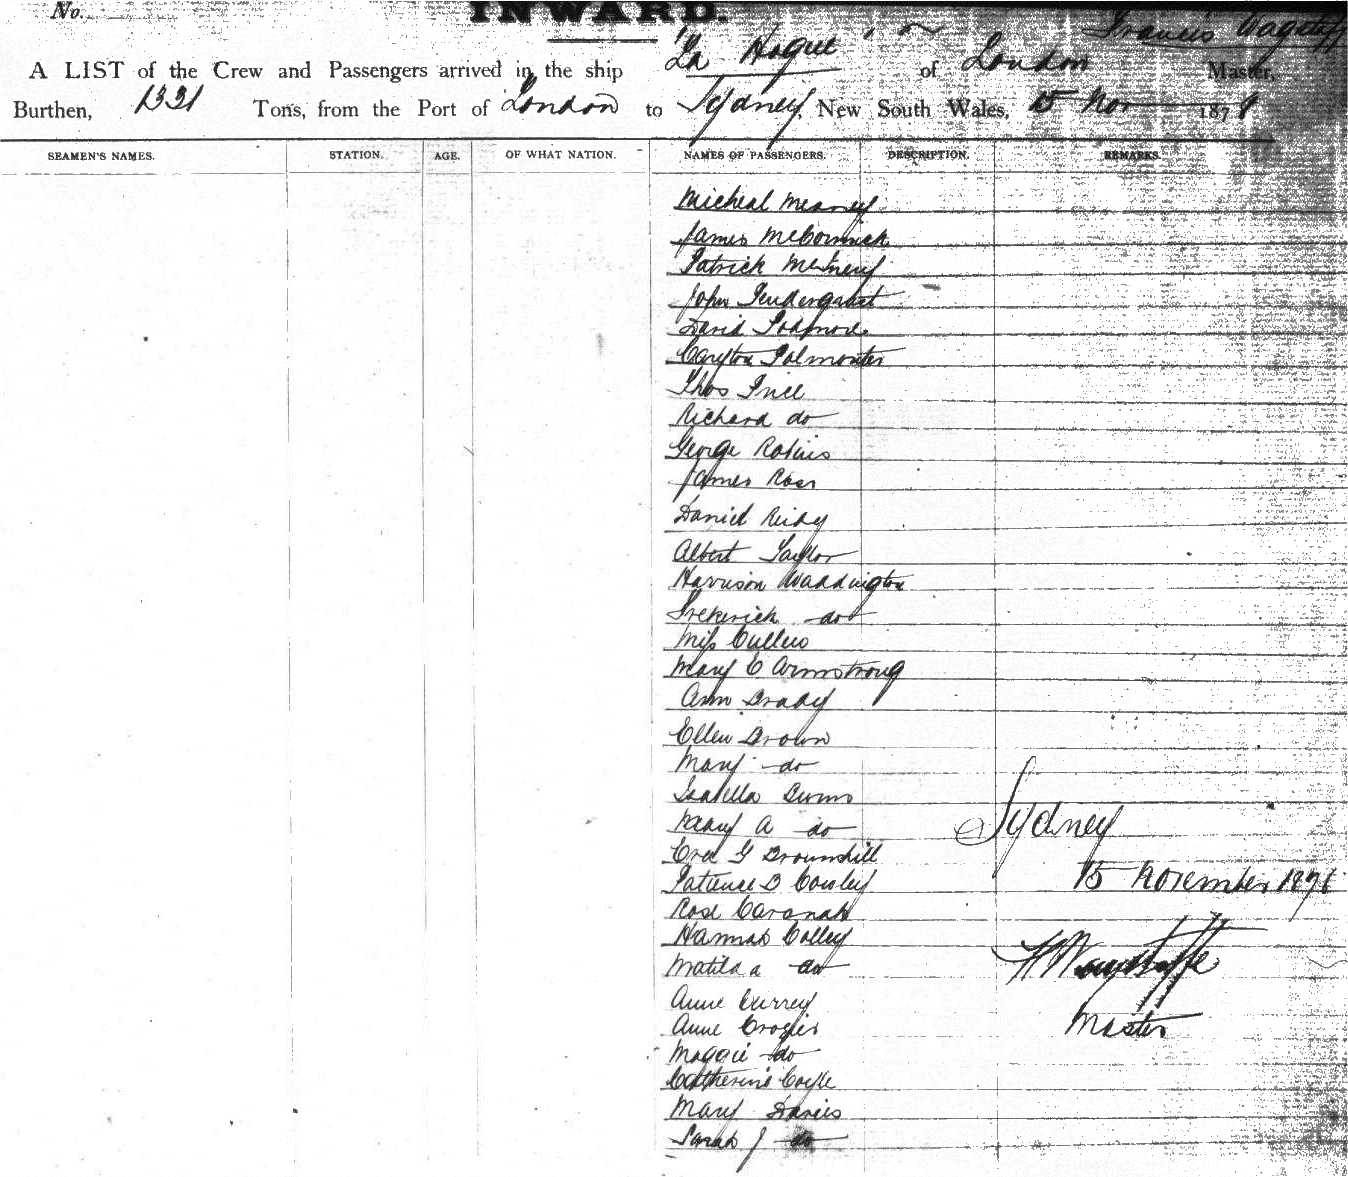 No.
INWARD.
A LIST of the Crew and Passengers arrived in the ship "La Hogue" of London Francis Wagstaff Master,
Burthen, 1331 Tons, from the Port of London to Sydney, New South Wales, 15 Nov 1878
SEAMEN'S NAMES. STATION. AGE. OF WHAT NATION. NAMES OF PASSENGERS. DESCRIPTION. REMARKS.
Micheal Meaney
James McCormick
Patrick
John Pendergast
David Podmore
Palmonter
Thos Price
Richard do
George Robins
James Ross
Daniel Reidy
Albert Taylor
Harrison Waddington
Frekerick do
Miss Cullen
Mary E Armstrong
Ann Brady
Ellen Brown
Mary do
Isabella Burns
Mary A do
G Brownhill
Patience B Cowley
Rose Cavanah
Hannah Colley
Matilda do
Anne Currey
Anne Crozier
Maggie do
Catherine Coyle
Mary Davies
Sarah J do
Sydney
15 November 1878
Wagstaffe
Master